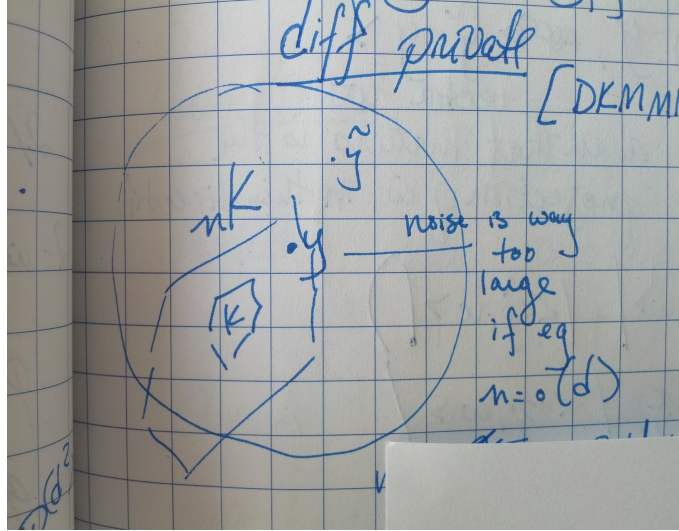 diff private
[DKMMN
ỹ
nK
.y
noise is way
too
large
K
if eg
n = o(d)